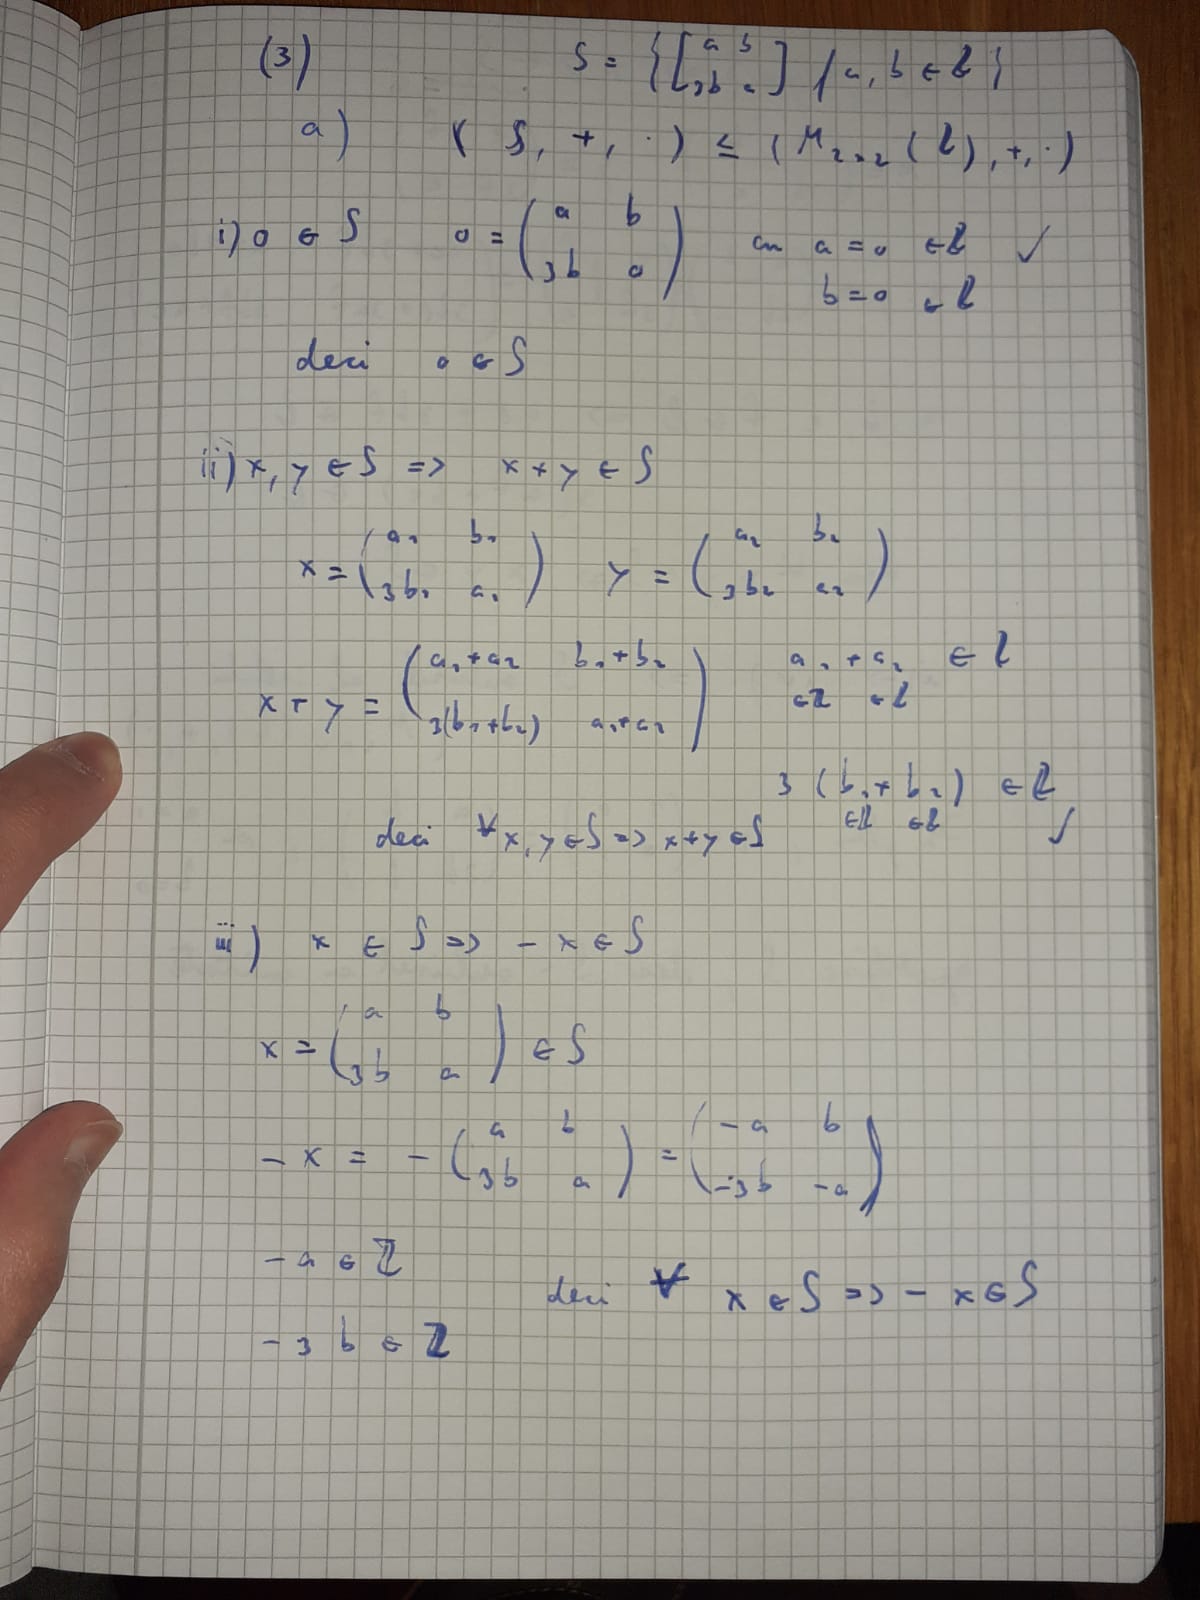 (3) S = { [ a b
3b a ] / a, b ∈ ℤ }
a) ( S, +, · ) ≤ ( M₂ₓ₂ ( ℤ ), +, · )
i) 0 ∈ S 0 = ( a b
3b a ) cu a = 0 ∈ ℤ ✓
b = 0 ∈ ℤ
deci 0 ∈ S
ii) x, y ∈ S => x + y ∈ S
x = ( a₁ b₁
3b₁ a₁ ) y = ( a₂ b₂
3b₂ a₂ )
x + y = ( a₁ + a₂ b₁ + b₂
3(b₁+b₂) a₁+a₂ ) a₁ + a₂ ∈ ℤ
∈ℤ ∈ℤ
3 ( b₁ + b₂ ) ∈ ℤ
∈ℤ ∈ℤ ✓
deci ∀ x, y ∈ S => x+y ∈ S
iii) x ∈ S => - x ∈ S
x = ( a b
3b a ) ∈ S
- x = - ( a b
3b a ) = ( -a b
-3b -a )
- a ∈ ℤ
deci ∀ x ∈ S => - x ∈ S
- 3 b ∈ ℤ